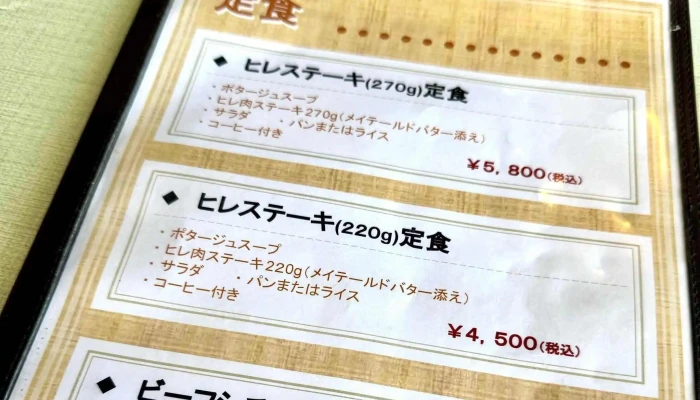 定食
◆ ヒレステーキ(270g)定食
・ポタージュスープ
・ヒレ肉ステーキ270g(メイテールドバター添え)
・サラダ ・パンまたはライス
・コーヒー付き
￥5,800(税込)
◆ ヒレステーキ(220g)定食
・ポタージュスープ
・ヒレ肉ステーキ220g(メイテールドバター添え)
・サラダ ・パンまたはライス
・コーヒー付き
￥4,500(税込)
◆ ビーフシ